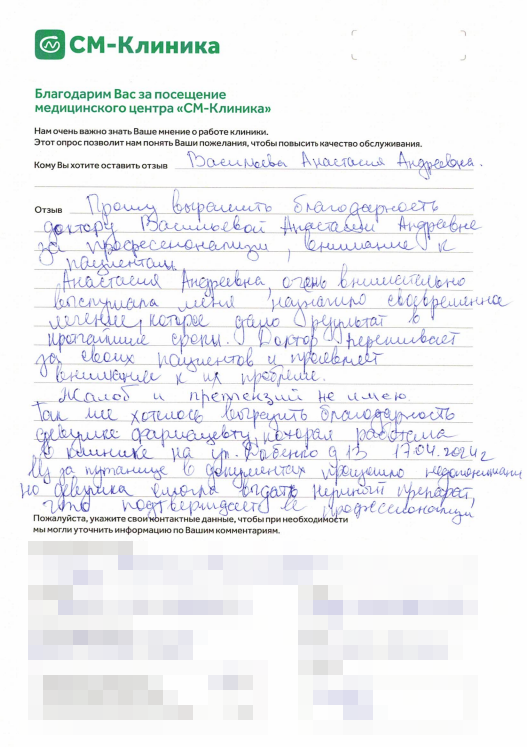 СМ-Клиника
Благодарим Вас за посещение
медицинского центра «СМ-Клиника»
Нам очень важно знать Ваше мнение о работе клиники.
Этот опрос позволит нам понять Ваши пожелания, чтобы повысить качество обслуживания.
Кому Вы хотите оставить отзыв Васильева Анастасия Андреевна.
Отзыв Прошу выразить благодарность
доктору Васильевой Анастасии Андреевне
за профессионализм, внимание к
пациентам
Анастасия Андреевна, очень внимательно
выслушала меня назначила своевременное
лечение, которое дало результат в
кротчайшие сроки. Доктор переживает
за своих пациентов и проявляет
внимание к их проблеме.
Жалоб и претензий не имею.
Так же хотелось выразить благодарность
девушке фармацевту, которая работала
в клинике на ул. д 13 17.04.2024г
Из за путанице в документах произошло недопонимание
но девушка смогла выдать нужный препарат,
что подтверждает ее профессионализм
Пожалуйста, укажите свои контактные данные, чтобы при необходимости
мы могли уточнить информацию по Вашим комментариям.